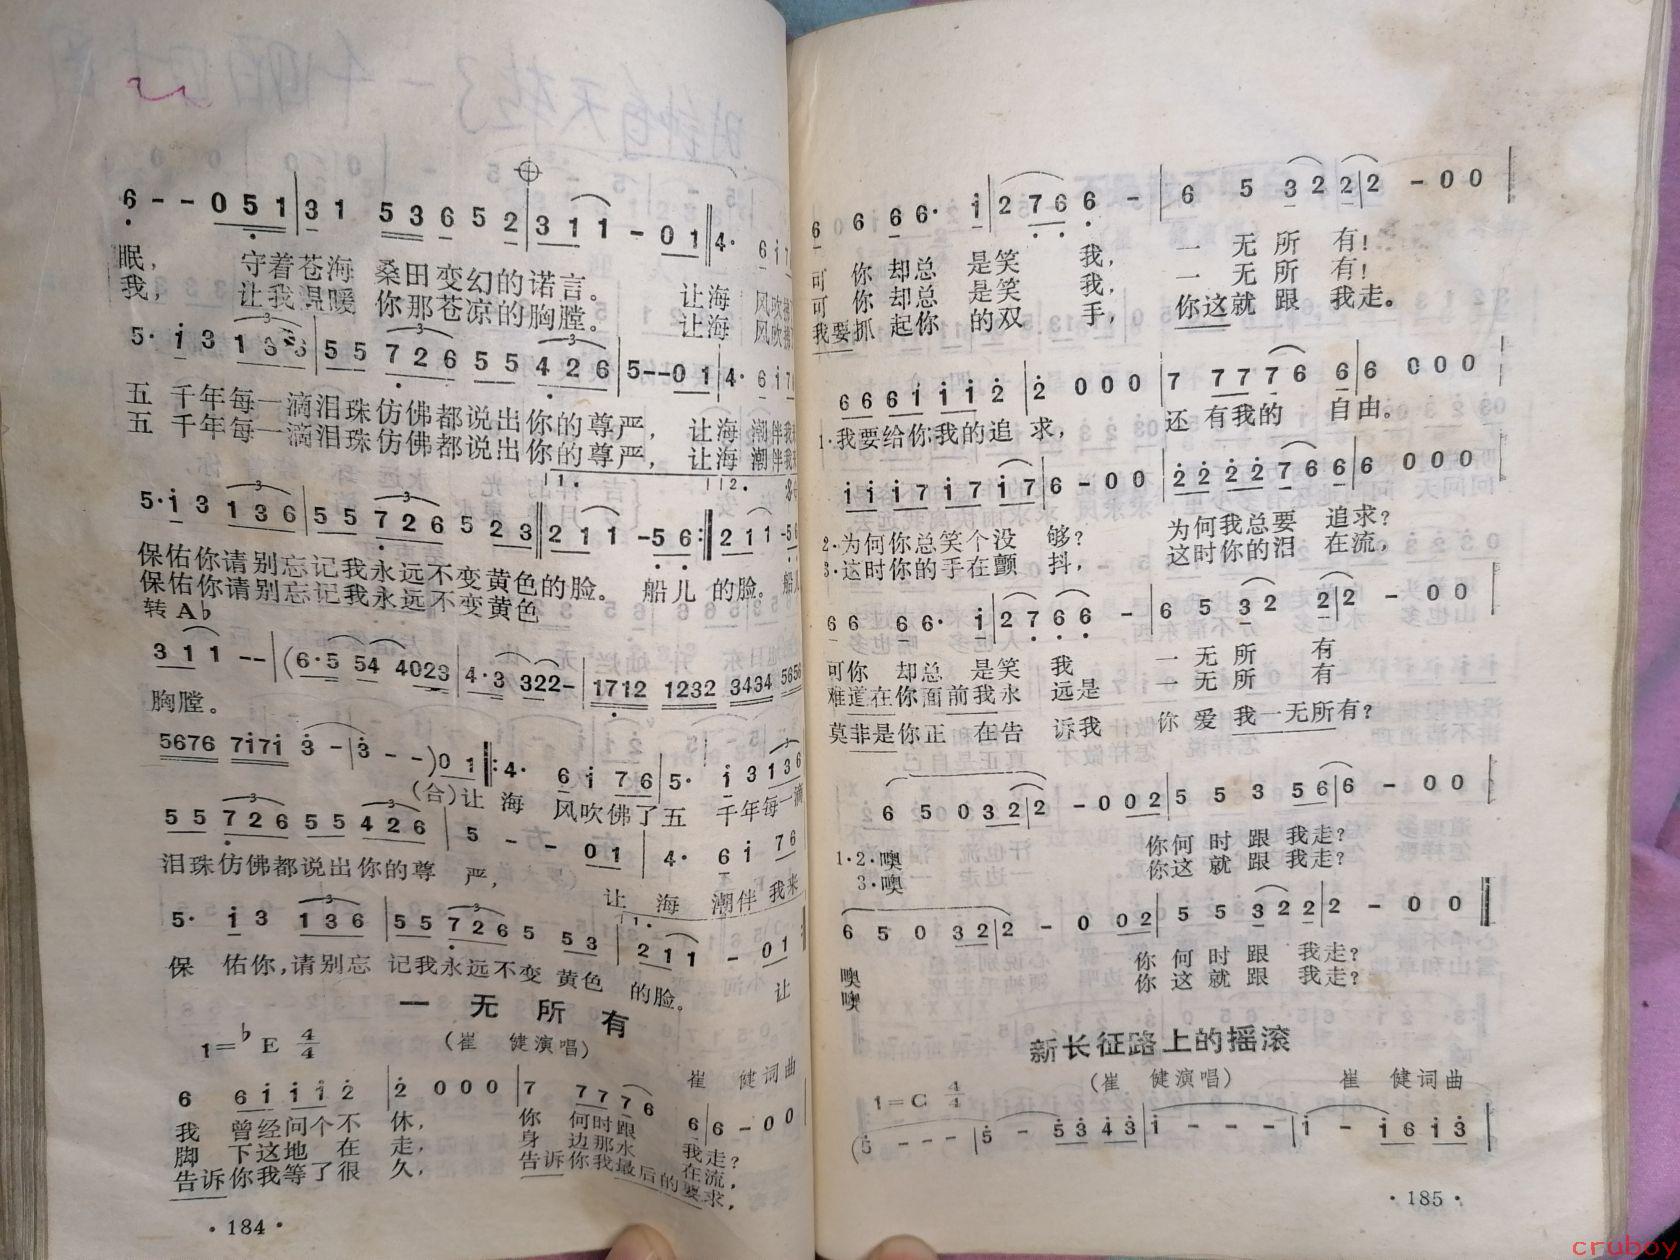 6 - - 0 5 1 | 3 1 5 3 6 5 2 | 3 1 1 - 0 1 ‖ 4· 6 i 7
眠， 守着苍海 桑田变幻的诺言。 让海 风吹拂
我， 让我温暖 你那苍凉的胸膛。 让海 风吹拂
5· i 3 1 3 6 | 5 5 7 2 6 5 5 4 2 6 | 5 - - 0 1 | 4· 6 i 7
五 千年每一滴泪珠仿佛都说出你的尊严， 让海 潮伴我
五 千年每一滴泪珠仿佛都说出你的尊严， 让海 潮伴我
1. 2.
5· i 3 1 3 6 | 5 5 7 2 6 5 2 3 ‖ 2 1 1 - 5 6 :‖ 2 1 1 - 5 6
保佑你请别忘记我永远不变黄色的脸。 船儿 的脸。 船儿
保佑你请别忘记我永远不变黄色
转 A♭
3 1 1 - - | (6·5 54 4023 | 4·3 322 - | 1712 1232 3434 5656
胸膛。
5676 7i7i 3 - | 3 - - ) 0 1 ‖: 4· 6 i 7 6 | 5· i 3 1 3 6
(合)让 海 风吹佛了五 千年每一滴
5 5 7 2 6 5 5 4 2 6 | 5 - - 0 1 | 4· 6 i 7 6
泪珠仿佛都说出你的尊 严， 让 海 潮伴 我来
1.
5· i 3 1 3 6 | 5 5 7 2 6 5 5 3 | 2 1 1 - 0 1
保 佑你，请别忘 记我永远不变 黄色 的脸。 让
一无所有
1=♭E 4/4 (崔 健演唱) 崔 健词曲
6 6 i i i 2 | 2 0 0 0 | 7 7 7 7 6 6 | 6 - 0 0
我 曾经问个不 休， 你 何时跟 我走？
脚 下这地 在 走， 身 边那水 在流，
告诉你我等了很 久， 告诉你我最后的要求，
·184·
6 6 6 6· i | 2 7 6 6 - | 6 5 3 2 2 | 2 - 0 0
可 你 却总 是笑 我， 一 无 所 有！
可 你 却总 是笑 我， 一 无 所 有！
我要抓 起你 的双 手， 你这就 跟 我走。
6 6 6 i i i 2 | 2 0 0 0 | 7 7 7 7 6 6 | 6 0 0 0
1·我要给你我的追 求， 还 有我的 自由。
i i i 7 i 7 i 7 | 6 - 0 0 | 2 2 2 2 7 6 6 | 6 0 0 0
2·为何你总笑个没 够？ 为何我总要 追求？
3·这时你的手在颤 抖， 这时你的泪 在流，
6 6 6 6· i | 2 7 6 6 - | 6 5 3 2 2 | 2 - 0 0
可你 却总 是笑 我 一 无 所 有
难道在你面前我永 远是 一 无 所 有
莫非是你正 在告 诉我 你 爱 我一无所有？
6 5 0 3 2 | 2 - 0 0 2 | 5 5 3 5 6 | 6 - 0 0
1·2·噢 你何 时 跟 我走？
3·噢 你这 就 跟 我走？
6 5 0 3 2 | 2 - 0 0 2 | 5 5 3 2 2 | 2 - 0 0
噢 你 何 时 跟 我走？
噢 你 这 就 跟 我走？
新长征路上的摇滚
1=C 4/4 (崔 健演唱) 崔 健词曲
(5 - - - | 5 - 5 3 4 3 | i - - - | i - i 6 i 3
·185·
cruboy